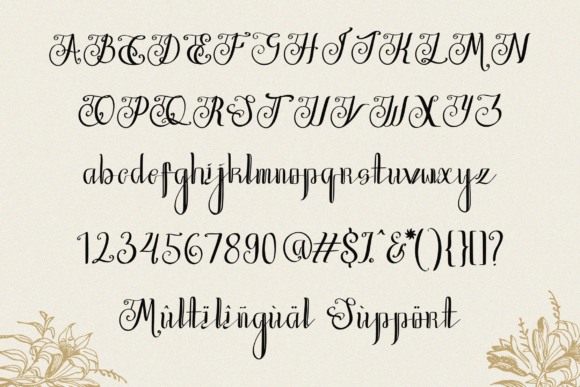 ABCDEFGHIJKLMN
OPQRSTUVWXYZ
abcdefghijklmnopqrstuvwxyz
1234567890@#$%^&*(){}[]?
Mûltilîñgùäl Sùppört